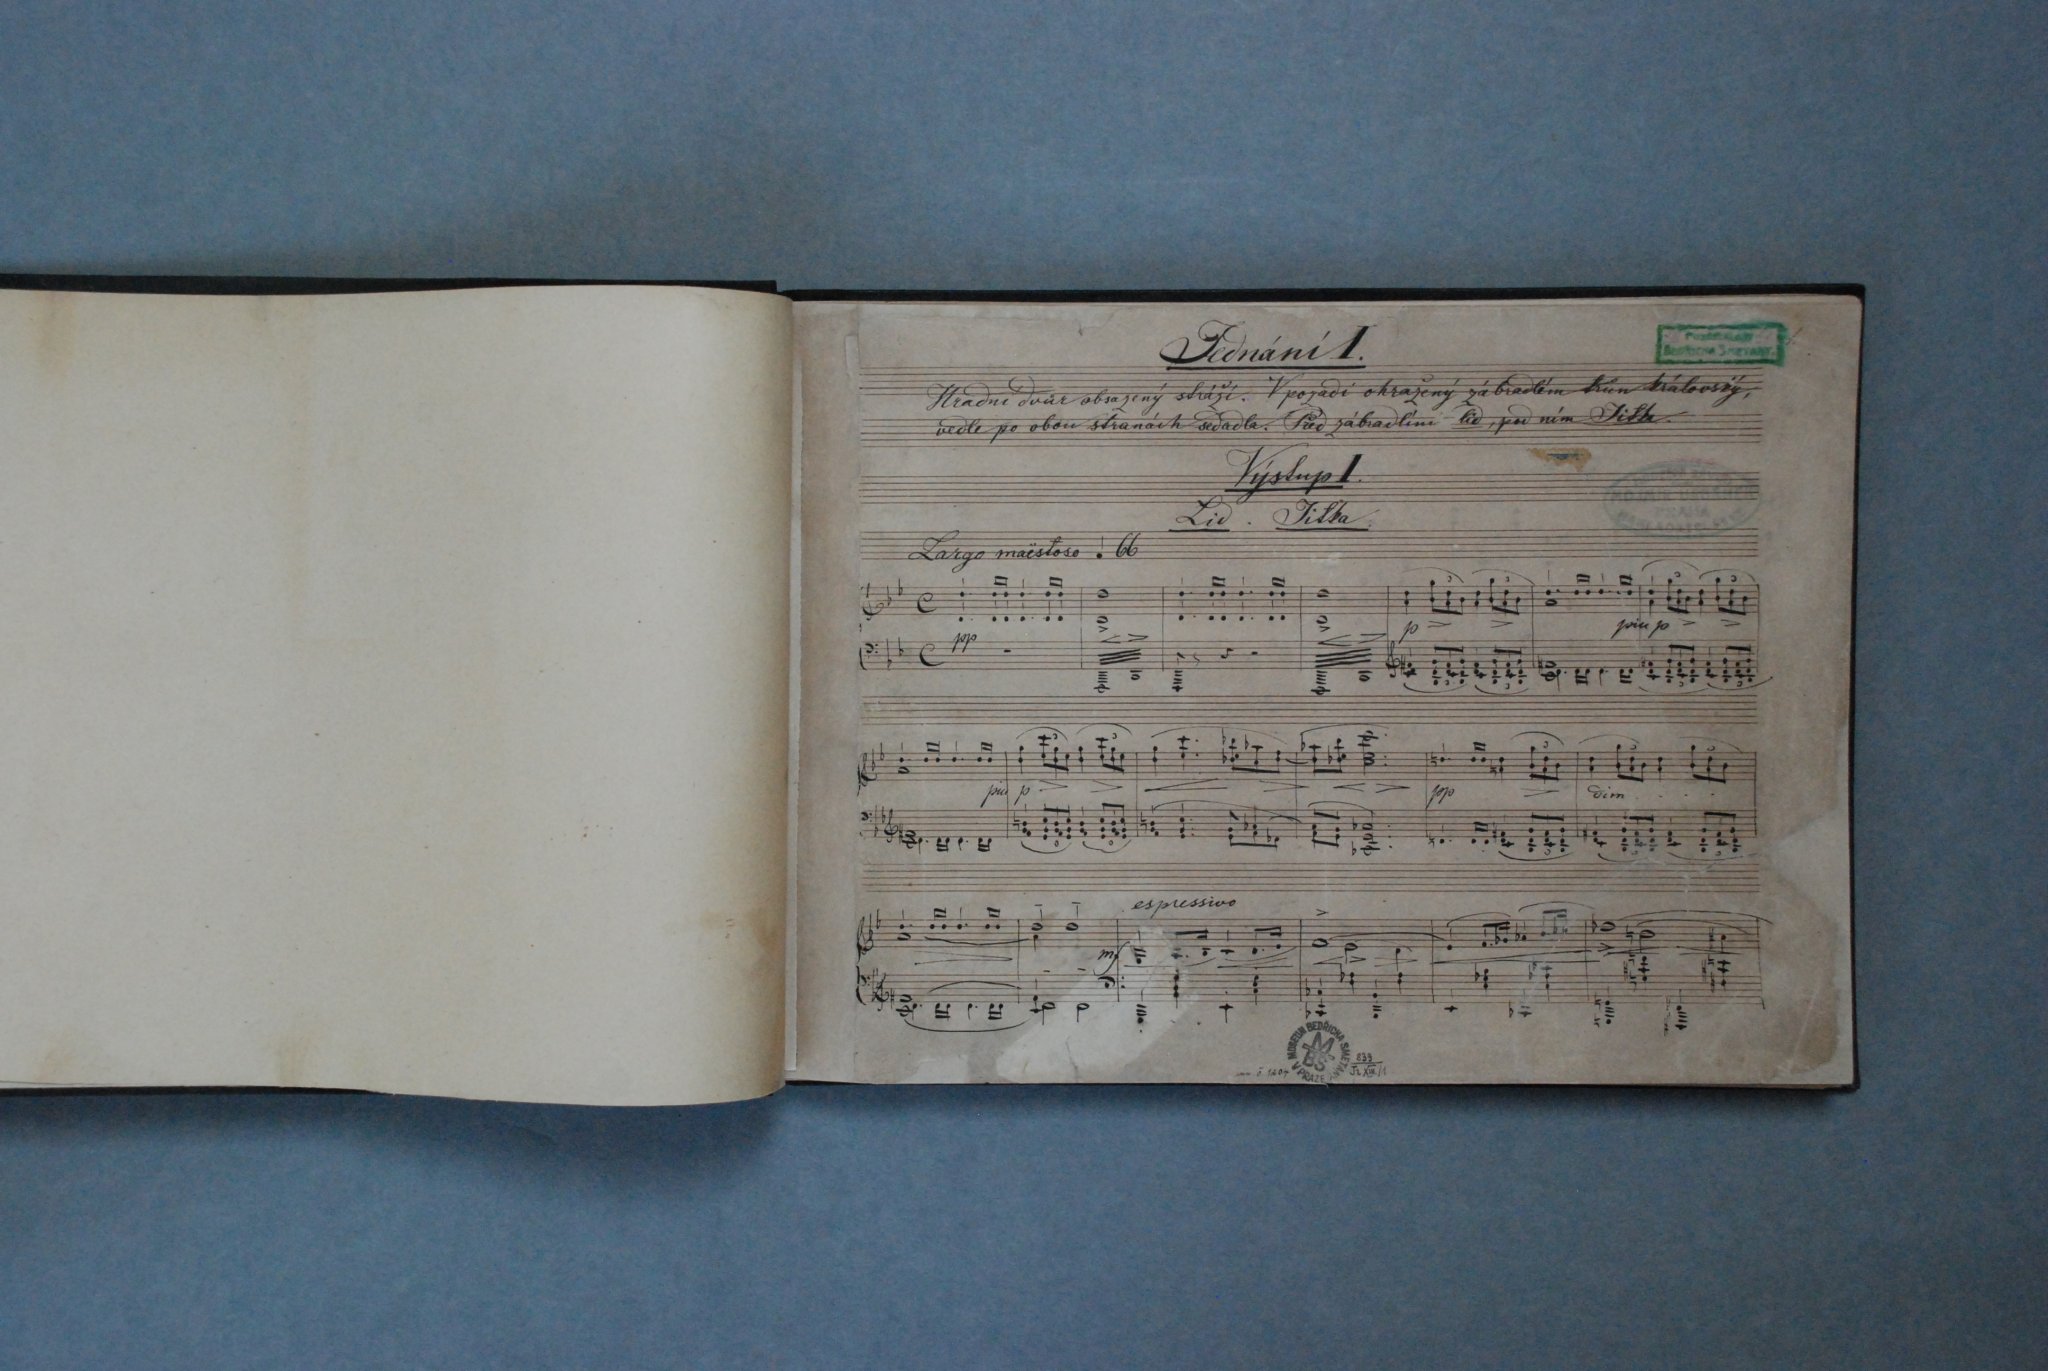 Jednání I.
Hradní dvůr obsazený stráží. V pozadí ohražený zábradlím trůn královský,
vedle po obou stranách sedadla. Před zábradlím lid, pod ním Jitka.
Výstup I.
Lid. Jitka.
Largo maëstoso 66
pp
p
piu p
piu p
pp
dim
espressivo
mf
BEDŘICHA SMETANY
PRAHA
MUSEUM BEDŘICHA SMETANY V PRAZE
č 1207
839